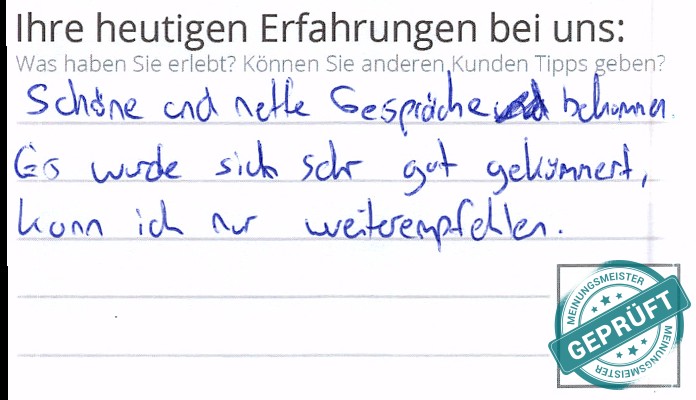 Ihre heutigen Erfahrungen bei uns:
Was haben Sie erlebt? Können Sie anderen Kunden Tipps geben?
Schöne und nette Gespräche bekommen.
Es wurde sich sehr gut gekümmert,
kann ich nur weiterempfehlen.
MEINUNGSMEISTER
GEPRÜFT
MEINUNGSMEISTER
MEINUNGSMEISTER